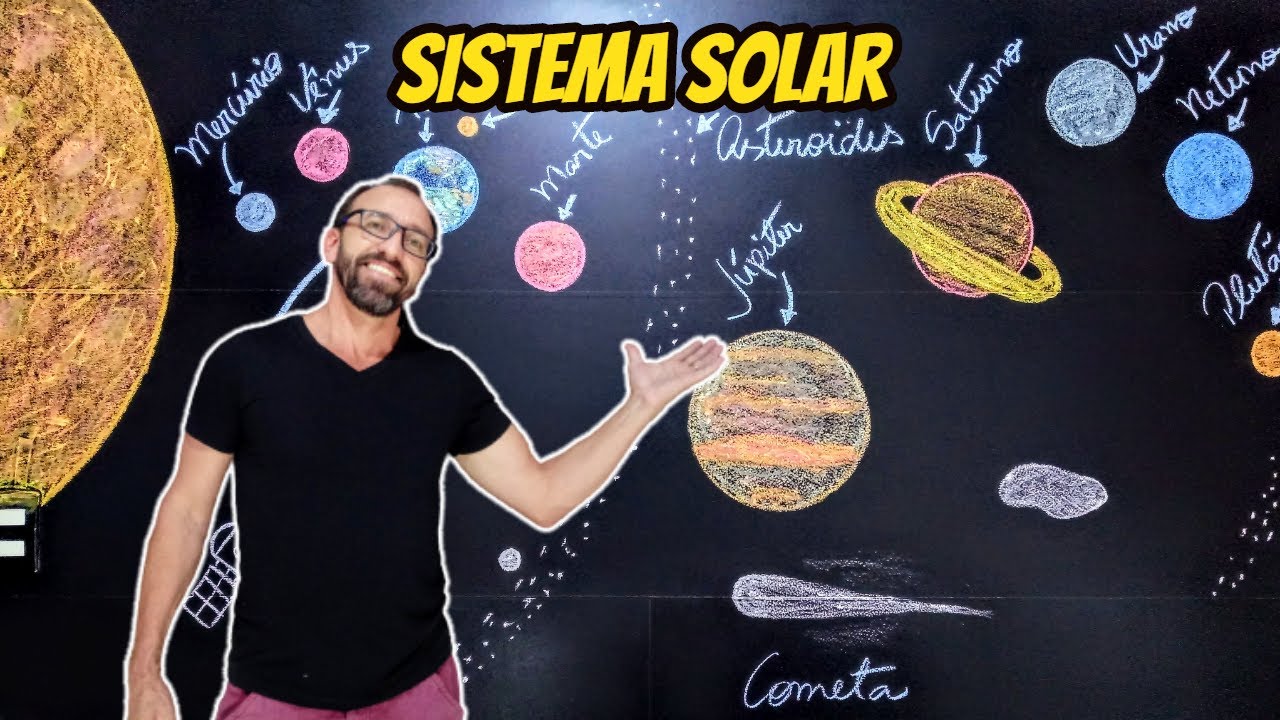 SISTEMA SOLAR
Mercúrio
Vênus
Marte
Asteroides
Júpiter
Saturno
Urano
Netuno
Cometa